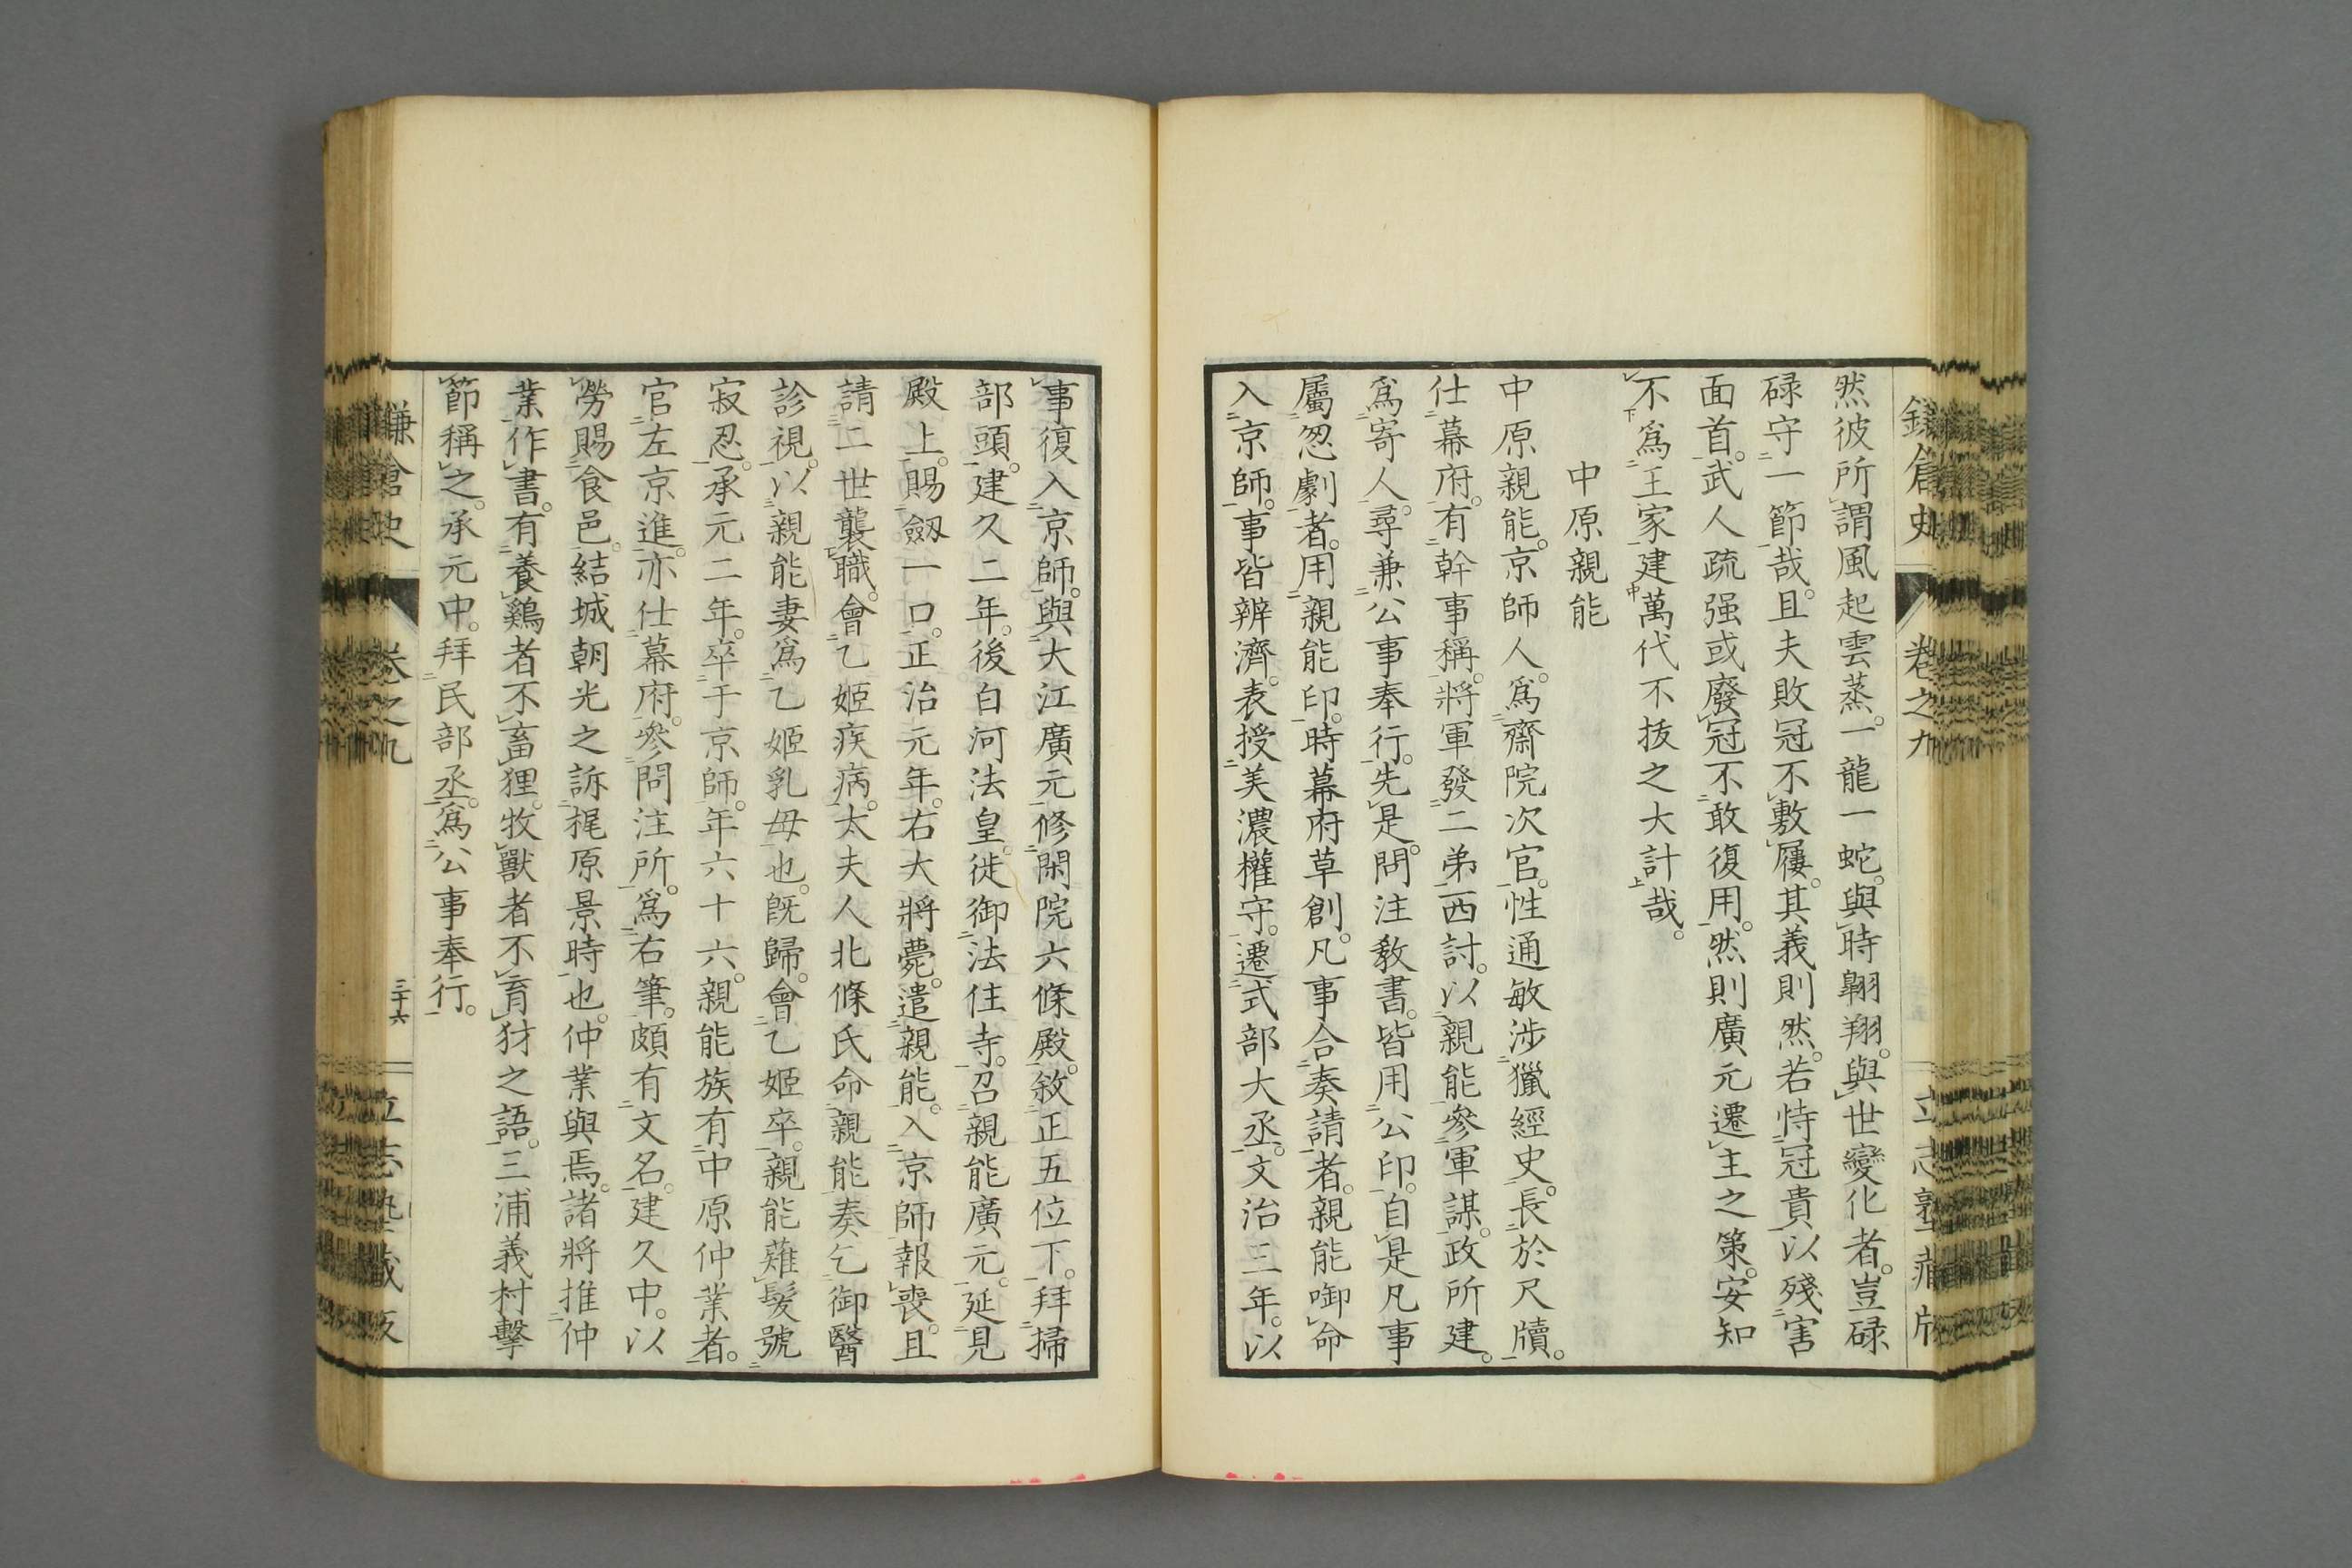 然彼所謂風起雲蒸。一龍一蛇。與時翺翔。與世變化者。豈碌
碌守一節哉。且夫敗冠不敷屨。其義則然。若恃冠貴以殘害
面首。武人疏强或廢冠不敢復用。然則廣元遷主之策。安知
不爲王家建萬代不拔之大計哉。
中原親能
中原親能。京師人。爲齋院次官。性通敏涉獵經史。長於尺牘。
仕幕府。有幹事稱。將軍發二弟西討。以親能參軍謀。政所建。
爲寄人。尋兼公事奉行。先是。問注教書。皆用公印。自是凡事
屬怱劇者。用親能印。時幕府草創。凡事合奏請者。親能啣命
入京師。事皆辨濟。表授美濃權守。遷式部大丞。文治三年。以
事復入京師。與大江廣元修閑院六條殿。敘正五位下。拜掃
部頭。建久二年。後白河法皇。徙御法住寺。召親能廣元。延見
殿上。賜劔一口。正治元年。右大將薨。遣親能。入京師報喪。且
請二世襲職。會乙姬疾病。太夫人北條氏命親能奏乞御醫
診視。以親能妻爲乙姬乳母也。旣歸。會乙姬卒。親能薙髮號
寂忍。承元二年。卒于京師。年六十六。親能族有中原仲業者。
官左京進。亦仕幕府。參問注所。爲右筆。頗有文名。建久中。以
勞賜食邑。結城朝光之訴梶原景時也。仲業與焉。諸將推仲
業作書。有養鷄者不畜狸。牧獸者不育豺之語。三浦義村擊
節稱之。承元中。拜民部丞。爲公事奉行。
鎌倉史
卷之九
三十六
立志塾藏版